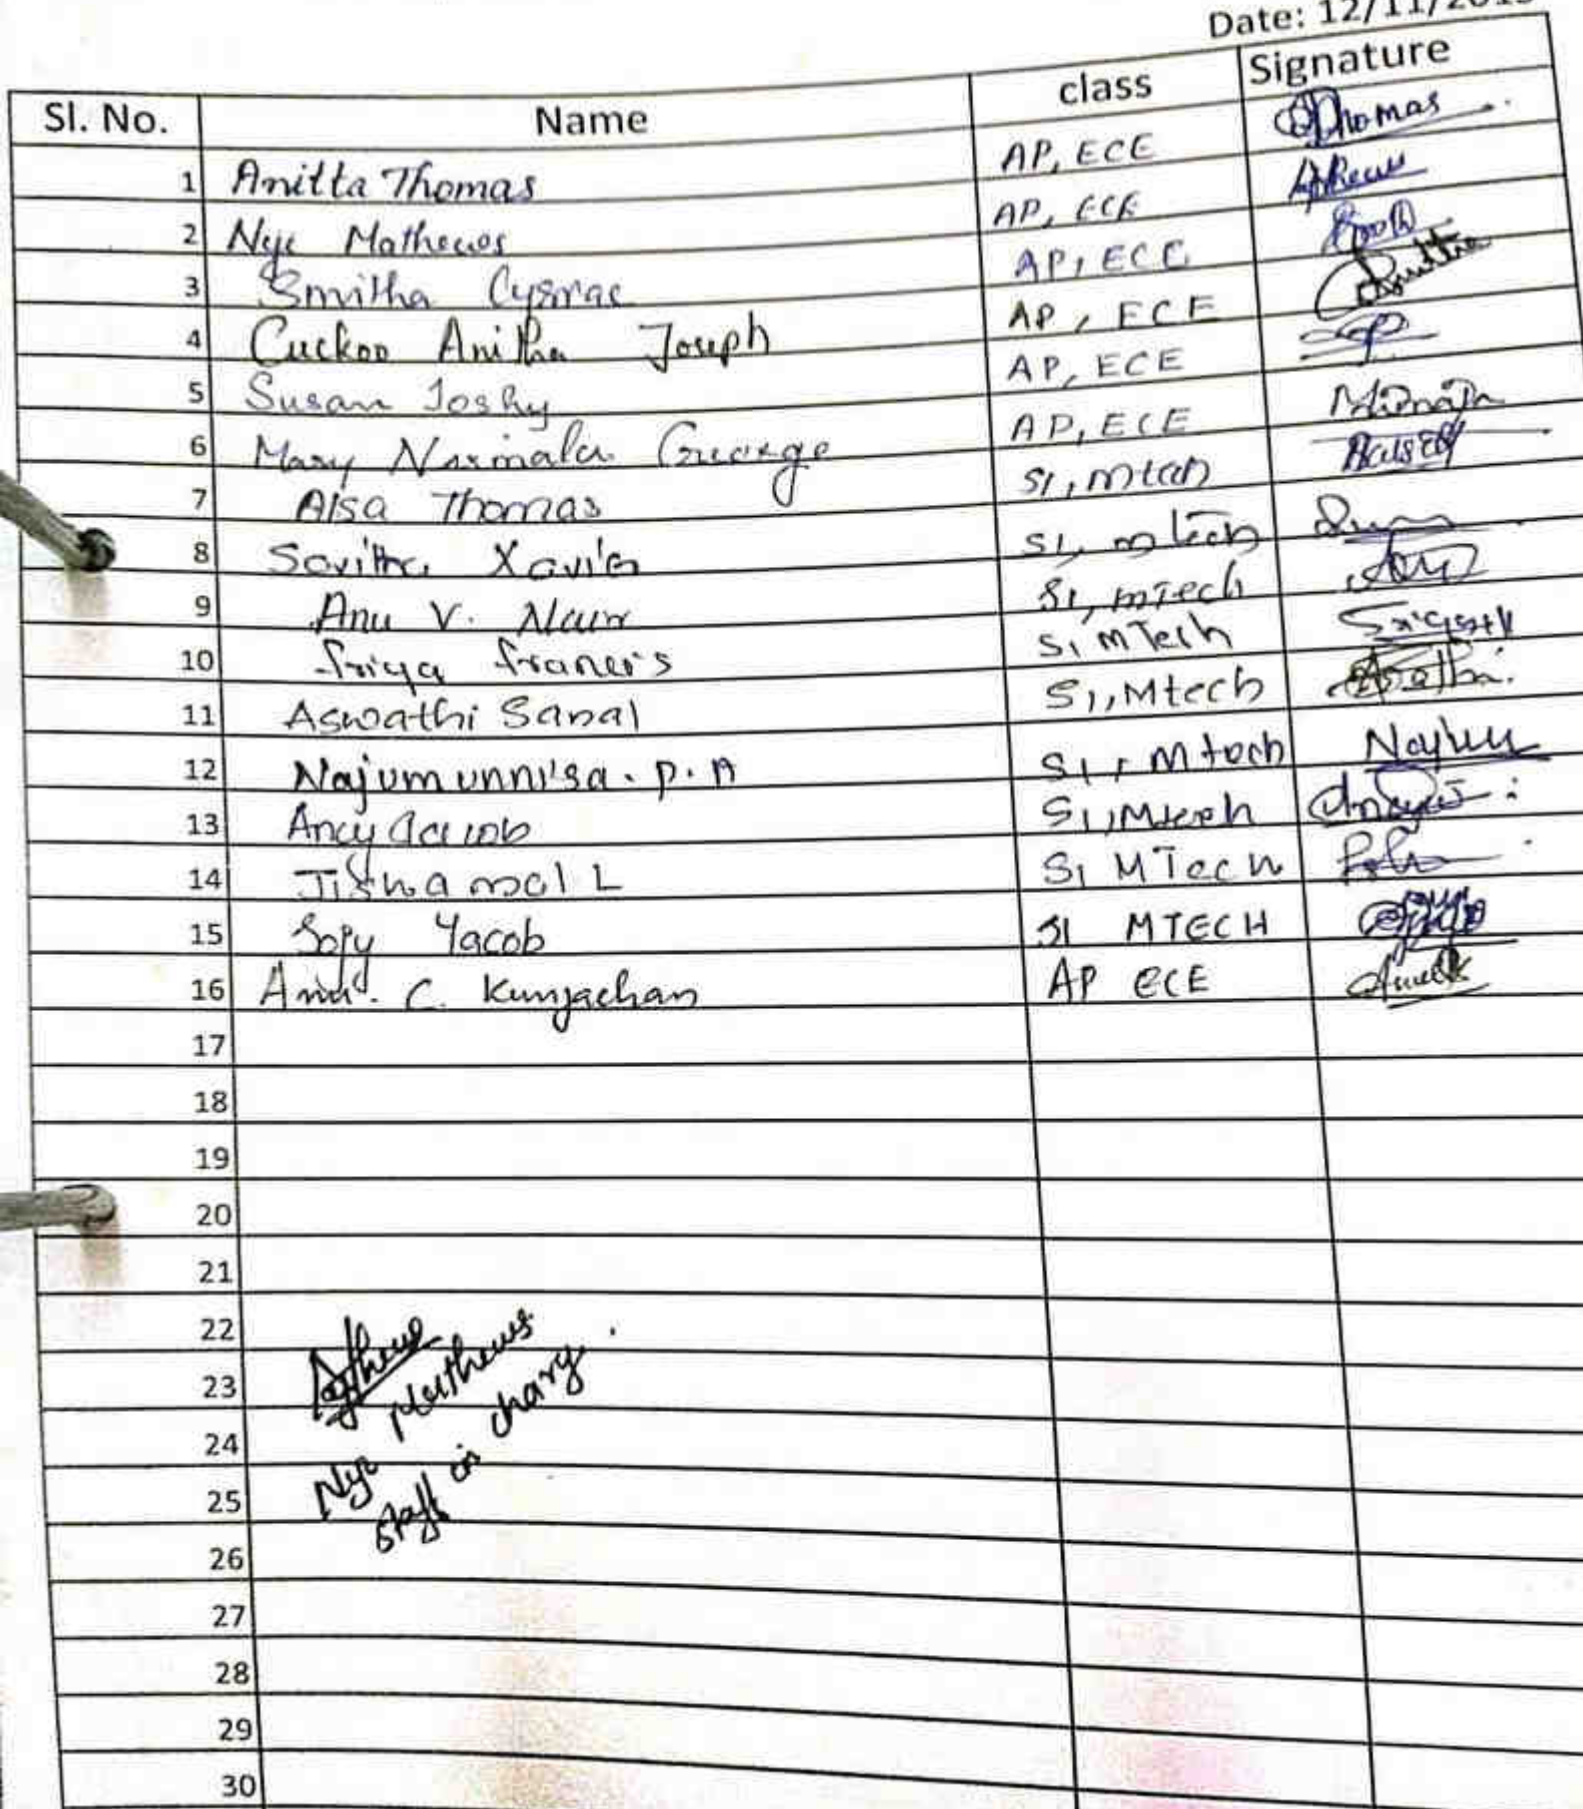 Date: 12/11/
Sl. No. Name class Signature
1 Anitta Thomas AP, ECE Thomas
2 Nye Mathews AP, ECE
3 Smitha Cyriac AP, ECE
4 Cuckoo Anitha Joseph AP, ECE
5 Susan Joshy AP, ECE
6 Mary Nirmala George AP, ECE
7 Alsa Thomas S1, mtech
8 Savitha Xavier S1, mtech
9 Anu V. Nair S1, mTech
10 Sriya Francis S1 MTech
11 Aswathi Sanal S1, Mtech
12 Najumunnisa. P. A S1, Mtech
13 Ancy Jacob S1, Mtech
14 Jishamol L S1 MTech
15 Sojy Yacob S1 MTECH
16 C. Kunjachan AP ECE
17
18
19
20
21
22
23
24
25
26
27
28
29
30
Mathews
staff in charge